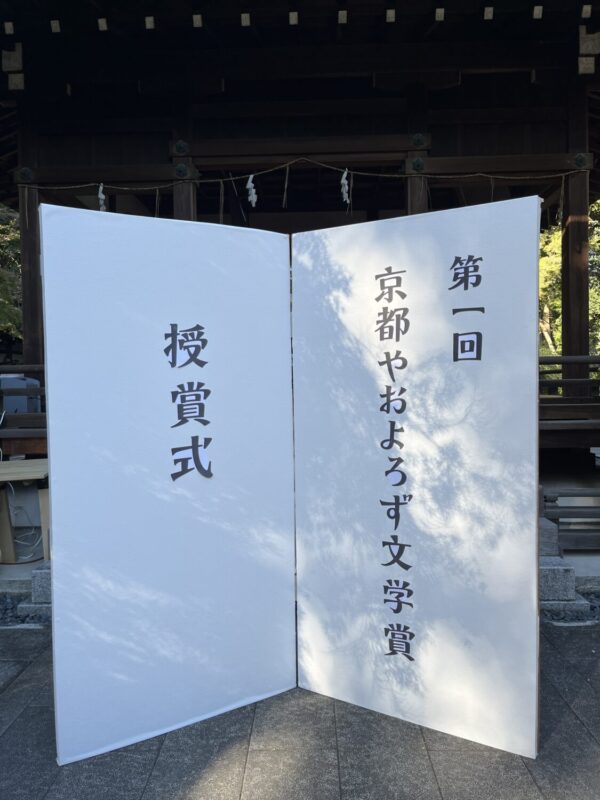 第一回
京都やおよろず文学賞
授賞式